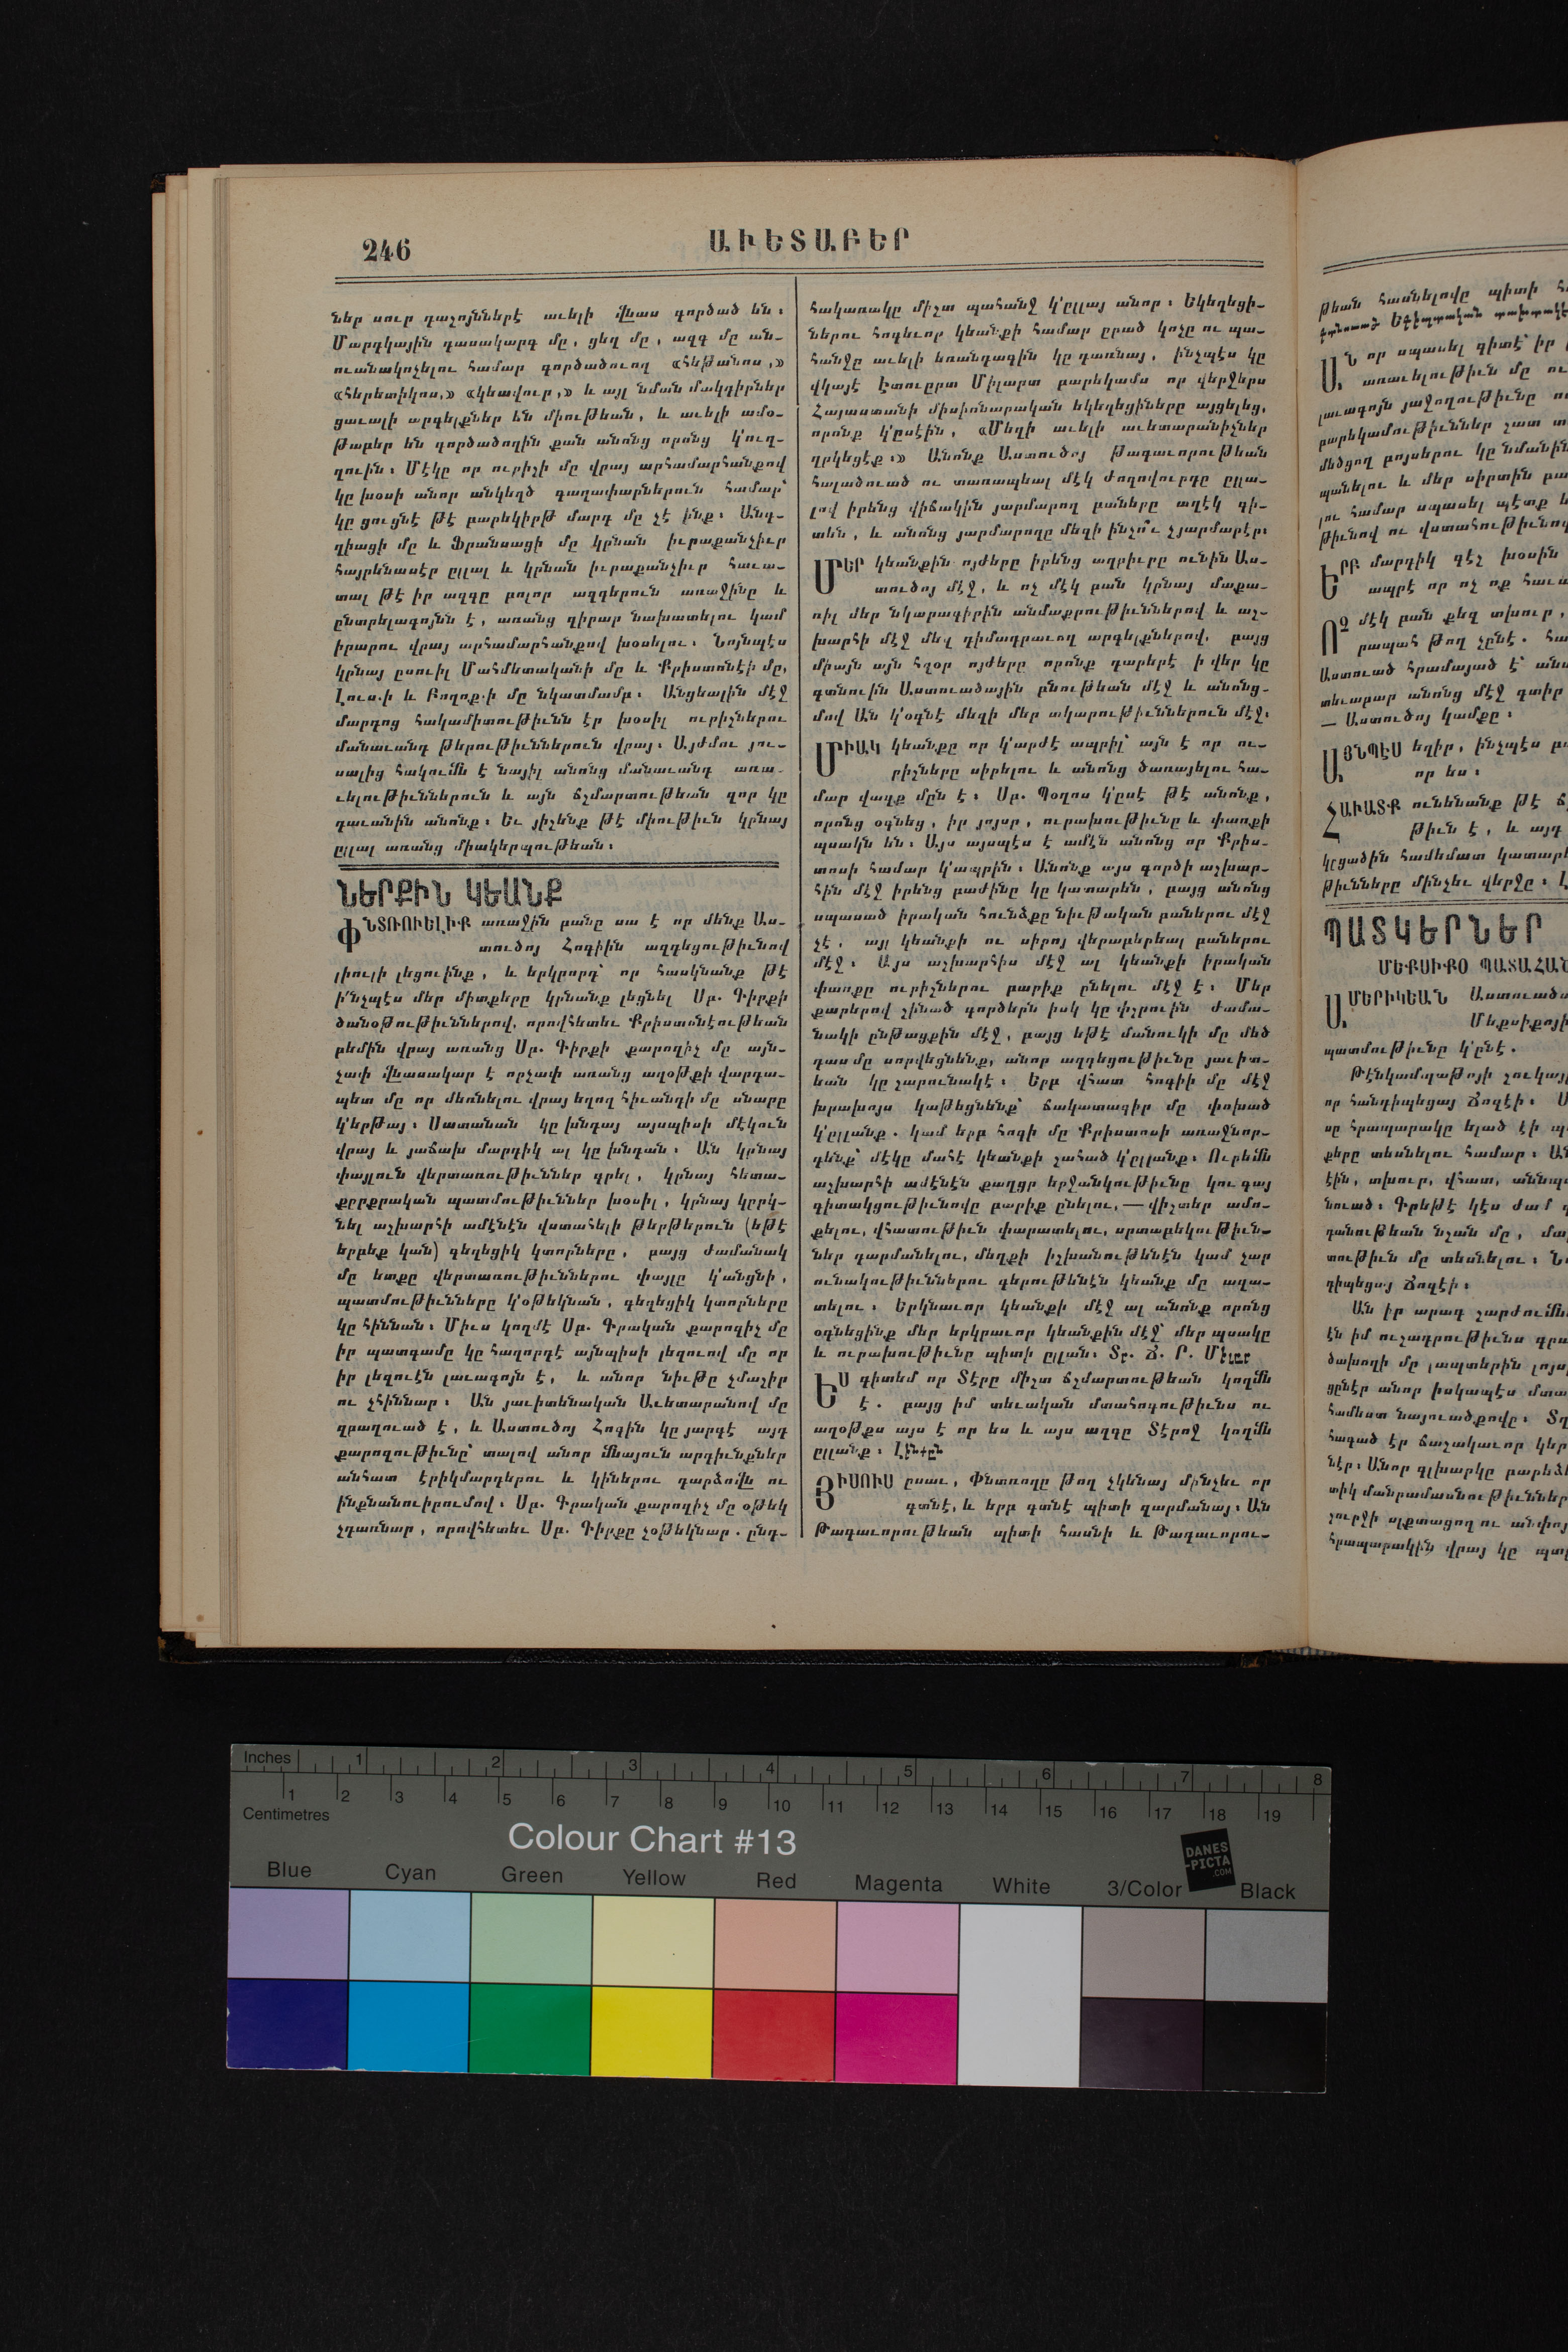 246
ԱՒԵՏԱԲԵՐ
ներ սուր դաշոյններէ աւելի վնաս գործած են։
Մարդկային դասակարգ մը, ցեղ մը, ազգ մը ան-
ուանակոչելու համար գործածուող «հեթանոս,»
«հերետիկոս,» «կեավուր,» և այլ նման մակդիրներ
ցաւալի արգելքներ են միութեան, և աւելի ամօ-
թաբեր են գործածողին քան անոնց որոնց կ'ուղ-
ղուին։ Մէկը որ ուրիշի մը վրայ արհամարհանքով
կը խօսի անոր անկեղծ գաղափարներուն համար՝
կը ցուցնէ թէ բարեկիրթ մարդ մը չէ ինք։ Անգ-
ղիացի մը և Ֆրանսացի մը կրնան իւրաքանչիւր
հայրենասէր ըլլալ և կրնան իւրաքանչիւր հաւա-
տալ թէ իր ազգը բոլոր ազգերուն առաջինը և
ընտրելագոյնն է, առանց զիրար նախատելու կամ
իրարու վրայ արհամարհանքով խօսելու։ Նոյնպէս
կրնայ ըսուիլ Մահմետականի մը և Քրիստոնէի մը,
Լուս.ի և Բողոք.ի մը նկատմամբ։ Անցեալին մէջ
մարդոց հակամիտութիւնն էր խօսիլ ուրիշներու
մանաւանդ թերութիւններուն վրայ։ Այժմու յու-
սալից հակումն է նայիլ անոնց մանաւանդ առա-
ւելութիւններուն և այն ճշմարտութեան զոր կը
դաւանին անոնք։ Եւ յիշենք թէ միութիւն կրնայ
ըլլալ առանց միակերպութեան։
ՆԵՐՔԻՆ ԿԵԱՆՔ
ՓՆՏՌՈՒԵԼԻՔ առաջին բանը սա է որ մենք Աս-
տուծոյ Հոգիին ազդեցութիւնով
լիուլի լեցուինք, և երկրորդ՝ որ հասկնանք թէ
ի՛նչպէս մեր միտքերը կրնանք լեցնել Սբ. Գիրքի
ծանօթութիւններով, որովհետեւ Քրիստոնէութեան
բեմին վրայ առանց Սբ. Գիրքի քարոզիչ մը այն-
չափ վնասակար է որչափ առանց աղօթքի վարդա-
պետ մը որ մեռնելու վրայ եղող հիւանդի մը սնարը
կ'երթայ։ Սատանան կը խնդայ այսպիսի մէկուն
վրայ և յաճախ մարդիկ ալ կը խնդան։ Ան կրնայ
փայլուն վերտառութիւններ գրել, կրնայ հետա-
քրքրական պատմութիւններ խօսիլ, կրնայ կըրկ-
նել աշխարհի ամէնէն վստահելի թերթերուն (եթէ
երբեք կան) գեղեցիկ կտորները, բայց ժամանակ
մը ետքը վերտառութիւններու փայլը կ'անցնի,
պատմութիւնները կ'օթեկնան, գեղեցիկ կտորները
կը հիննան։ Միւս կողմէ Սբ. Գրական քարոզիչ մը
իր պատգամը կը հաղորդէ այնպիսի լեզուով մը որ
իր լեզուէն լաւագոյն է, և անոր նիւթը չմաշիր
ու չհիննար։ Ան յաւիտենական Աւետարանով մը
զբաղուած է, և Աստուծոյ Հոգին կը յարգէ այդ
քարոզութիւնը՝ տալով անոր մնայուն արդիւնքներ
անհատ էրիկմարդերու և կիներու դարձովն ու
ինքնանուիրումով։ Սբ. Գրական քարոզիչ մը օթեկ
չդառնար, որովհետեւ Սբ. Գիրքը չօթեկնար. ընդ-
հակառակը միշտ պահանջ կ'ըլլայ անոր։ Եկեղեցի-
ներու հոգեւոր կեանքի համար ըրած կոչը ու պա-
հանջը աւելի եռանդագին կը դառնայ, ինչպէս կը
վկայէ Էտուըրտ Միլարտ բարեկամս որ վերջերս
Հայաստանի միսիոնարական եկեղեցիները այցելեց,
որոնք կ'ըսէին, «Մեզի աւելի աւետարանիչներ
ղրկեցէք։» Անոնք Աստուծոյ Թագաւորութեան
հալածուած ու տառապեալ մէկ ժողովուրդը ըլլա-
լով իրենց վիճակին յարմարող բաները աղէկ գի-
տեն, և անոնց յարմարողը մեզի ինչո՞ւ չյարմարէր։
ՄԵՐ կեանքին ոյժերը իրենց աղբիւրը ունին Աս-
տուծոյ մէջ, և ոչ մէկ բան կրնայ մաքա-
ռիլ մեր նկարագիրին անմաքրութիւններով և աշ-
խարհի մէջ մեզ դիմադրաւող արգելքներով, բայց
միայն այն հզօր ոյժերը որոնք դարերէ ի վեր կը
գտնուին Աստուածային բնութեան մէջ և անոնց-
մով Ան կ'օգնէ մեզի մեր տկարութիւններուն մէջ։
ՄԻԱԿ կեանքը որ կ'արժէ ապրիլ՝ այն է որ ու-
րիշները սիրելու և անոնց ծառայելու հա-
մար վազք մըն է։ Սբ. Պօղոս կ'ըսէ թէ անոնք,
որոնց օգնեց, իր յոյսր, ուրախութիւնը և փառքի
պսակն են։ Այս այսպէս է ամէն անոնց որ Քրիս-
տոսի համար կ'ապրին։ Անոնք այս գործի աշխար-
հին մէջ իրենց բաժինը կը կատարեն, բայց անոնց
սպասած իրական հունձքը նիւթական բաներու մէջ
չէ, այլ կեանքի ու սիրոյ վերաբերեալ բաներու
մէջ։ Այս աշխարհիս մէջ ալ կեանքի իրական
փառքը ուրիշներու բարիք ընելու մէջ է։ Մեր
քարերով շինած գործերն իսկ կը փշրուին ժամա-
նակի ընթացքին մէջ, բայց եթէ մանուկի մը մեծ
դաս մը սորվեցնենք, անոր ազդեցութիւնը յաւիտ-
եան կը շարունակէ։ Երբ վհատ հոգիի մը մէջ
խրախոյս կաթեցնենք՝ ճակատագիր մը փոխած
կ'ըլլանք. կամ երբ հոգի մը Քրիստոսի առաջնոր-
դենք՝ մէկը մահէ կեանքի շահած կ'ըլլանք։ Ուրեմն
աշխարհի ամէնէն քաղցր երջանկութիւնը կու գայ
գիտակցութիւնովը բարիք ընելու,— վիշտեր ամո-
քելու, վհատութիւն փարատելու, սրտաբեկութիւն-
ներ դարմանելու, մեղքի իշխանութենէն կամ չար
ունակութիւններու գերութենէն կեանք մը ազա-
տելու։ Երկնաւոր կեանքի մէջ ալ անոնք որոնց
օգնեցինք մեր երկրաւոր կեանքին մէջ՝ մեր պսակը
և ուրախութիւնը պիտի ըլլան։ Տր. Ճ. Ր. Միլլըր
ԵՍ գիտեմ որ Տէրը միշտ ճշմարտութեան կողմն
է. բայց իմ տեւական մտահոգութիւնս ու
աղօթքս այս է որ ես և այս ազգը Տէրոջ կողմն
ըլլանք։ Լինքըն
ՅԻՍՈՒՍ ըսաւ, Փնտռողը թող չկենայ մինչեւ որ
գտնէ, և երբ գտնէ պիտի զարմանայ։ Ան
Թագաւորութեան պիտի հասնի և Թագաւորու-
թեան հասնելովը պիտի
Ն որ սպասել գիտէ՝ իր
առաւելութիւն մը ու
լաւագոյն յաջողութիւնը
բարեկամութիւններ շատ
մեծցող բոյսերու կը նմանին
պանելու և մեր սիրտին
լու համար սպասել պէտք
թիւնով ու վստահութիւնով
ԵՐԲ մարդիկ գէշ խօսին
ապրէ որ ոչ ոք
ՈՉ մէկ բան քեզ տխուր,
րապահ թող չընէ.
Աստուած հրամայած է՝
տեւաբար անոնց մէջ գտիր
— Աստուծոյ կամքը։
ԱՅՆՊԷՍ եղիր, ինչպէս
որ ես։
ՀԱՒԱՏՔ ունենանք թէ
թիւն է, և այդ
կըցածին համեմատ
թիւնները մինչեւ վերջը։
ՊԱՏԿԵՐՆԵՐ
ՄԵՔՍԻՔՕ
ԱՄԵՐԻԿԵԱՆ
պատմութիւնը կ'ընէ.
Թէնկամպաթոյի
որ հանդիպեցայ Ճոզէի։
սը հրապարակը ելած էի
քերը տեսնելու համար։
էին, տխուր, վհատ,
նուած։ Գրեթէ կէս ժամ
դանութեան նշան մը,
տութիւն մը տեսնելու։
դիպեցայ Ճոզէի։
Ան իր արագ
էն իմ ուշադրութիւնս
ծախողի մը լապտերին
ցընէր անոր իսկապէս
համեստ նայուածքովը։
հագած էր ճաշակաւոր
նէր։ Անոր գլխարկը
տիկ մանրամասնութիւններ
շուրջի ալքտացող ու
հրապարակին վրայ կը
Inches 1 2 3 4 5 6 7 8
1 2 3 4 5 6 7 8 9 10 11 12 13 14 15 16 17 18 19
Centimetres
Colour Chart #13
DANES
-PICTA
.COM
Blue Cyan Green Yellow Red Magenta White 3/Color Black